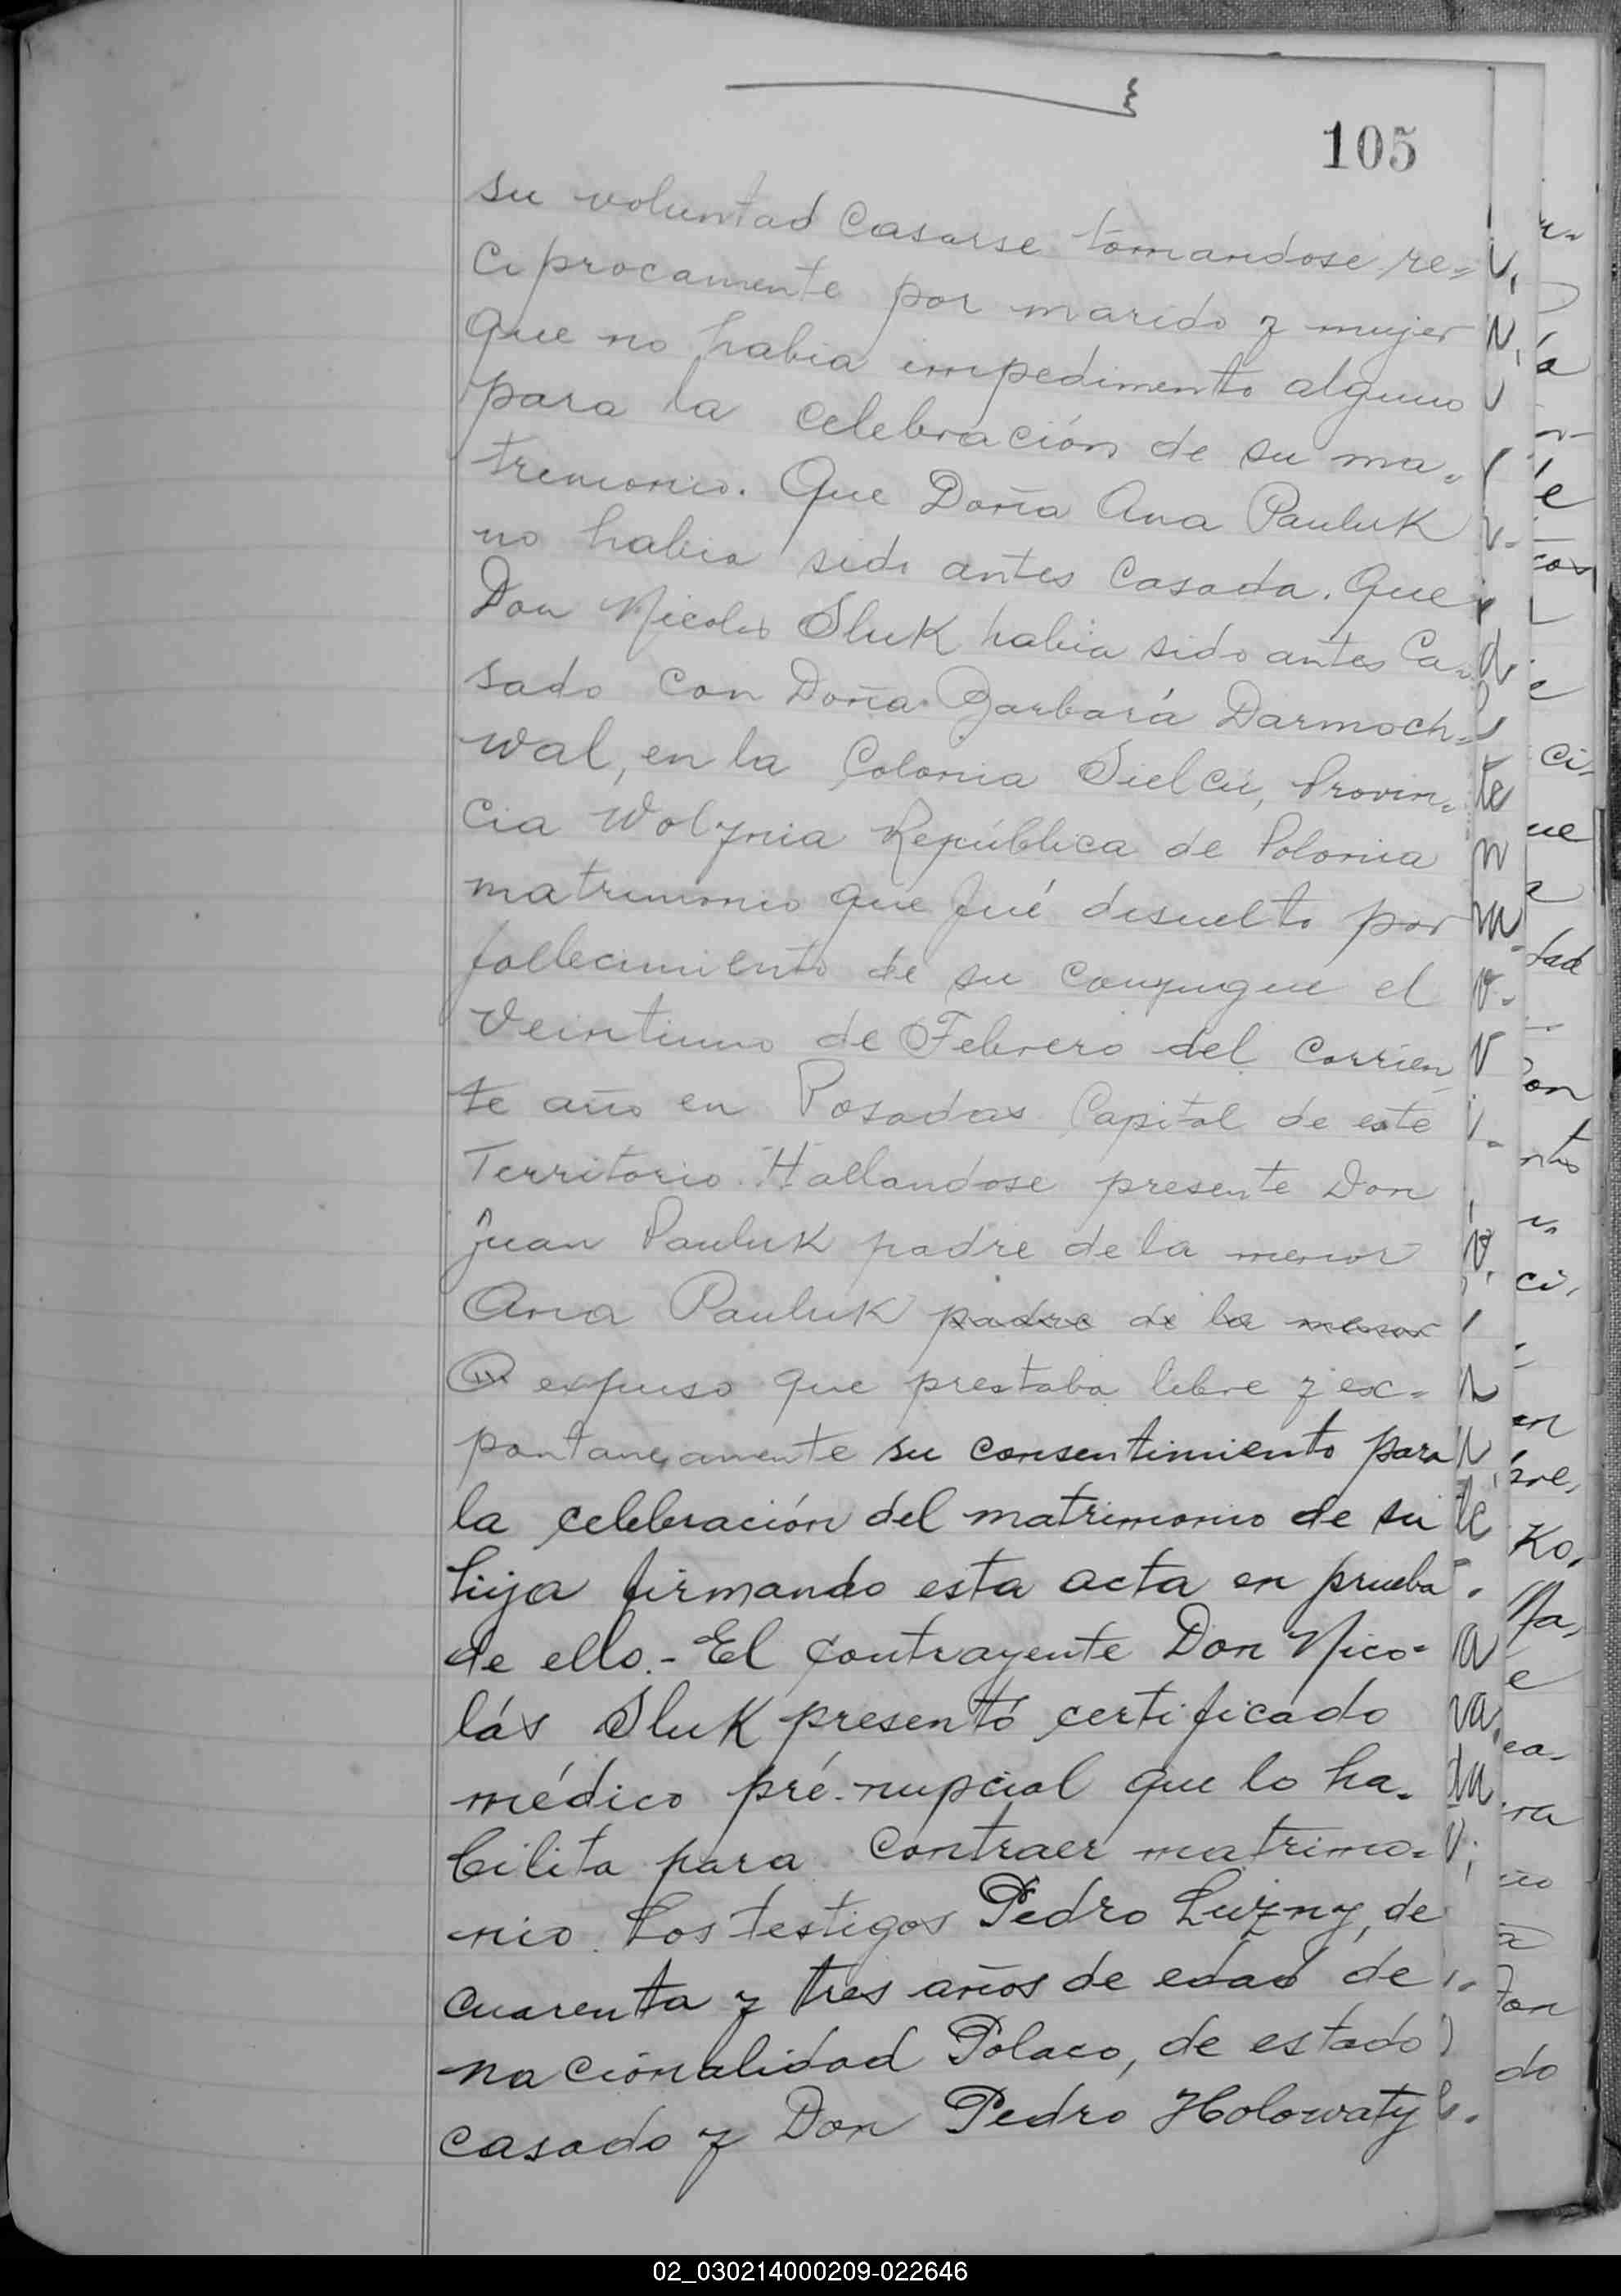 105
su voluntad casarse tomandose re=
ciprocamente por marido y mujer
Que no habia impedimento alguno
para la celebración de su ma=
trimonio. Que Doña Ana Pauluk
no habia sido antes casada. Que
Don Nicolas Sluk habia sido antes Ca=
sado con Doña Barbará Darmoch=
wal, en la Colonia Sielcú, Provin=
cia Wolynia República de Polonia
matrimonio que fué disuelto por
fallecimiento de su conyugue el
Veintiuno de Febrero del corrien
te año en Posadas Capital de este
Territorio. Hallandose presente Don
Juan Pauluk padre de la menor
Ana Pauluk padre de la menor
expuso que prestaba libre y exc=
pontaneamente su consentimiento para
la celebración del matrimonio de su
hija firmando esta acta en prueba
de ello.- El contrayente Don Nico=
lás Sluk presentó certificado
médico pré-nupcial que lo ha=
bilita para contraer matrimo=
nio. Los testigos Pedro Luzny, de
cuarenta y tres años de edad de
nacionalidad Polaco, de estado
casado y Don Pedro Holowaty
02_030214000209-022646